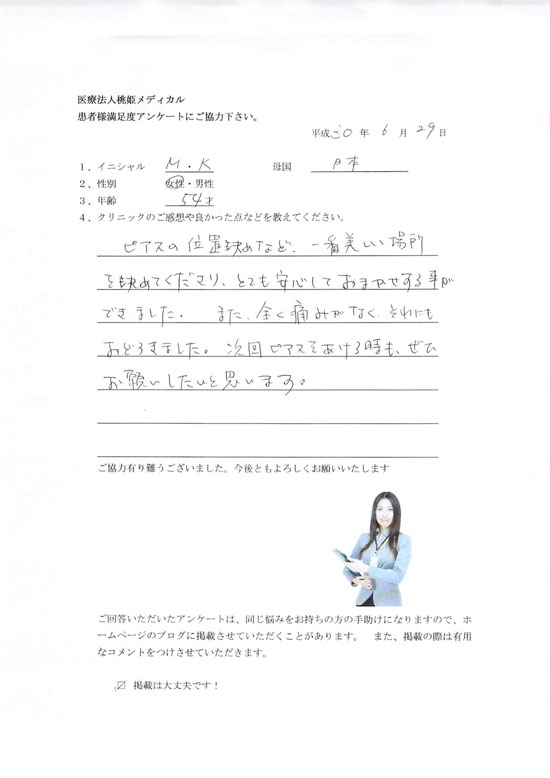 医療法人桃姫メディカル
患者様満足度アンケートにご協力下さい。
平成30年 6月 29日
1、イニシャル M・K 母国 日本
2、性別 女性・男性
3、年齢 54才
4、クリニックのご感想や良かった点などを教えてください。
ピアスの位置決めなど、一番美しい場所
を決めてくださり、とても安心しておまかせする事が
できました。 また、全く痛みがなく、それにも
おどろきました。次回ピアスをあける時も、ぜひ
お願いしたいと思います。
ご協力有り難うございました。今後ともよろしくお願いいたします
ご回答いただいたアンケートは、同じ悩みをお持ちの方の手助けになりますので、ホ
ームページのブログに掲載させていただくことがあります。 また、掲載の際は有用
なコメントをつけさせていただきます。
☑ 掲載は大丈夫です!